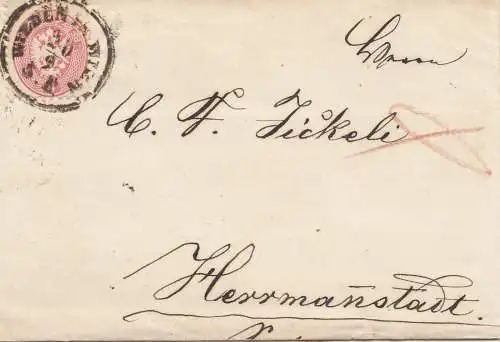 WIEDEN in WIEN
Herrn
C. F. Jickeli
Herrmannstadt.